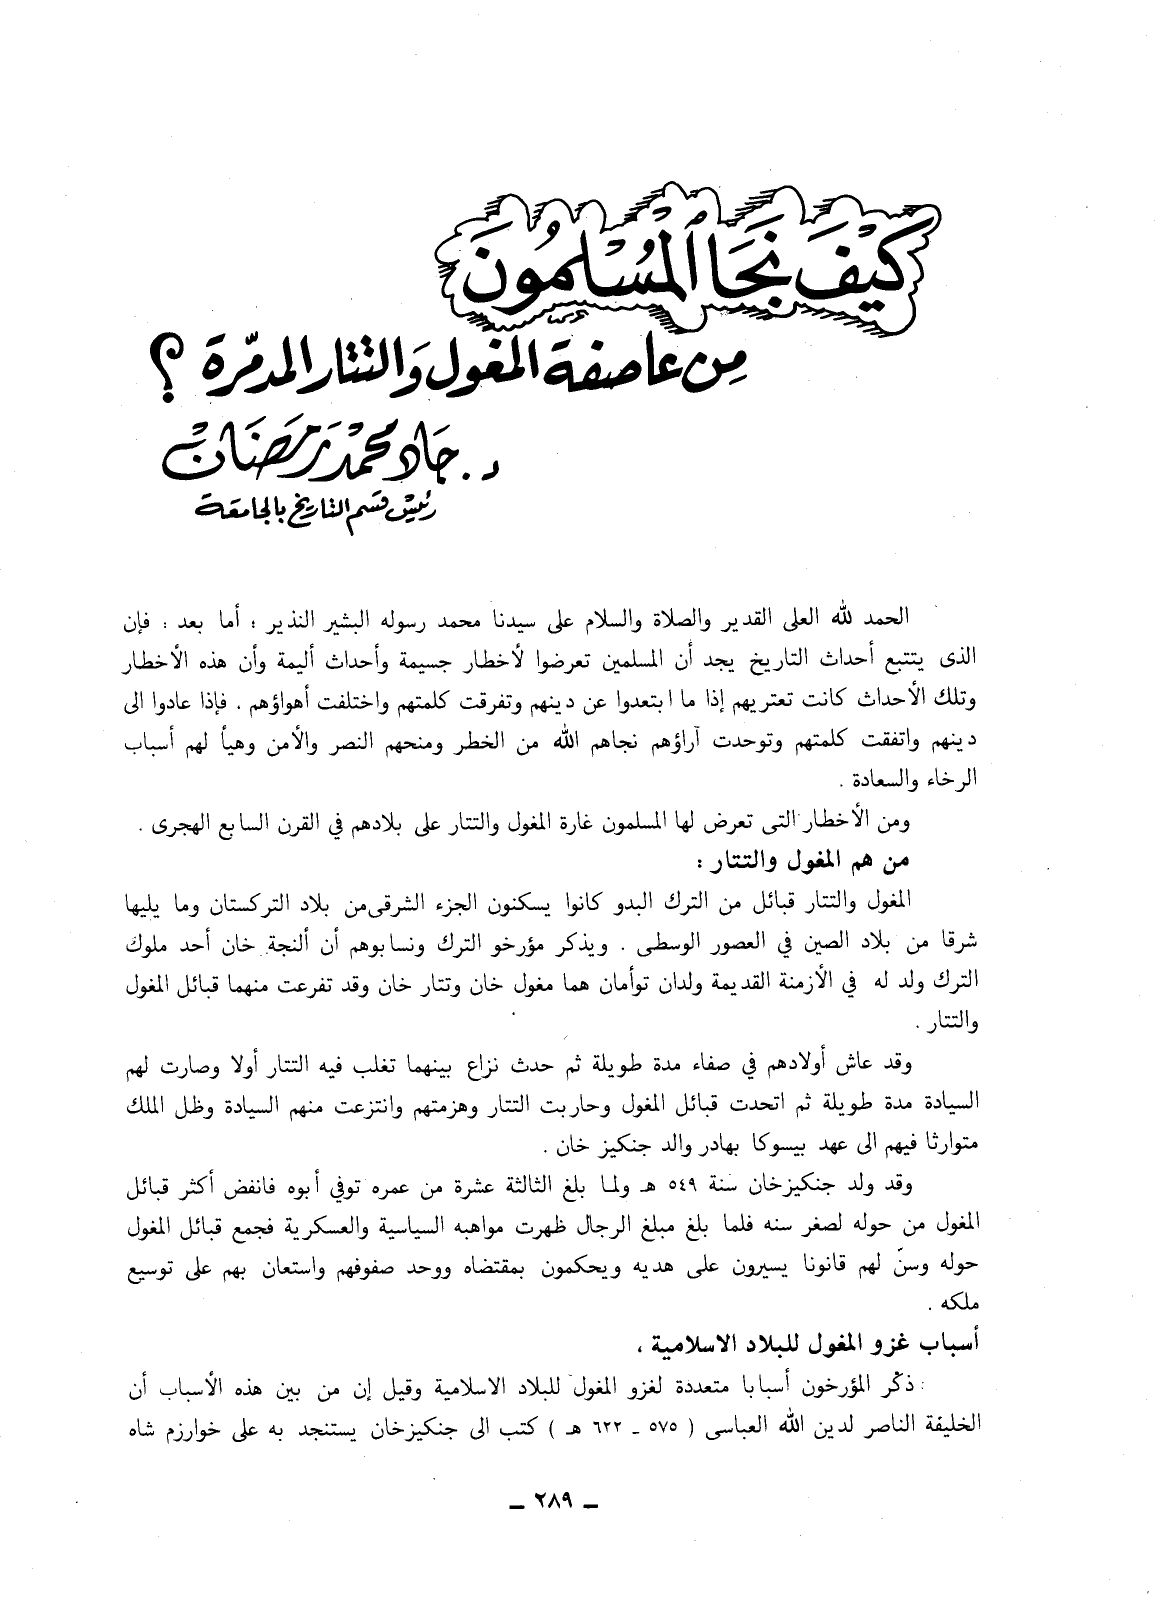 كَيْفَ نَجَا المُسْلِمُونَ
مِن عاصفة المغول وَالتتار المدمّرة ؟
د. جَاد محمّد رَمضَان
رئيس قسم التاريخ بالجامعة
الحمد لله العلى القدير والصلاة والسلام على سيدنا محمد رسوله البشير النذير ؛ أما بعد : فإن
الذى يتتبع أحداث التاريخ يجد أن المسلمين تعرضوا لأخطار جسيمة وأحداث أليمة وأن هذه الأخطار
وتلك الأحداث كانت تعتريهم إذا ما ابتعدوا عن دينهم وتفرقت كلمتهم واختلفت أهواؤهم . فإذا عادوا الى
دينهم واتفقت كلمتهم وتوحدت آراؤهم نجاهم الله من الخطر ومنحهم النصر والأمن وهيأ لهم أسباب
الرخاء والسعادة .
ومن الأخطار التى تعرض لها المسلمون غارة المغول والتتار على بلادهم في القرن السابع الهجرى .
من هم المغول والتتار :
المغول والتتار قبائل من الترك البدو كانوا يسكنون الجزء الشرقى من بلاد التركستان وما يليها
شرقا من بلاد الصين في العصور الوسطى . ويذكر مؤرخو الترك ونسابوهم أن ألنجة خان أحد ملوك
الترك ولد له في الأزمنة القديمة ولدان توأمان هما مغول خان وتتار خان وقد تفرعت منهما قبائل المغول
والتتار .
وقد عاش أولادهم في صفاء مدة طويلة ثم حدث نزاع بينهما تغلب فيه التتار أولا وصارت لهم
السيادة مدة طويلة ثم اتحدت قبائل المغول وحاربت التتار وهزمتهم وانتزعت منهم السيادة وظل الملك
متوارثا فيهم الى عهد بيسوكا بهادر والد جنكيز خان .
وقد ولد جنكيزخان سنة ٥٤٩ هـ ولما بلغ الثالثة عشرة من عمره توفي أبوه فانفض أكثر قبائل
المغول من حوله لصغر سنه فلما بلغ مبلغ الرجال ظهرت مواهبه السياسية والعسكرية فجمع قبائل المغول
حوله وسنّ لهم قانونا يسيرون على هديه ويحكمون بمقتضاه ووحد صفوفهم واستعان بهم على توسيع
ملكه .
أسباب غزو المغول للبلاد الاسلامية ،
ذكر المؤرخون أسبابا متعددة لغزو المغول للبلاد الاسلامية وقيل إن من بين هذه الأسباب أن
الخليفة الناصر لدين الله العباسى ( ٥٧٥ ـ ٦٢٢ هـ ) كتب الى جنكيزخان يستنجد به على خوارزم شاه
ـ ٢٨٩ ـ